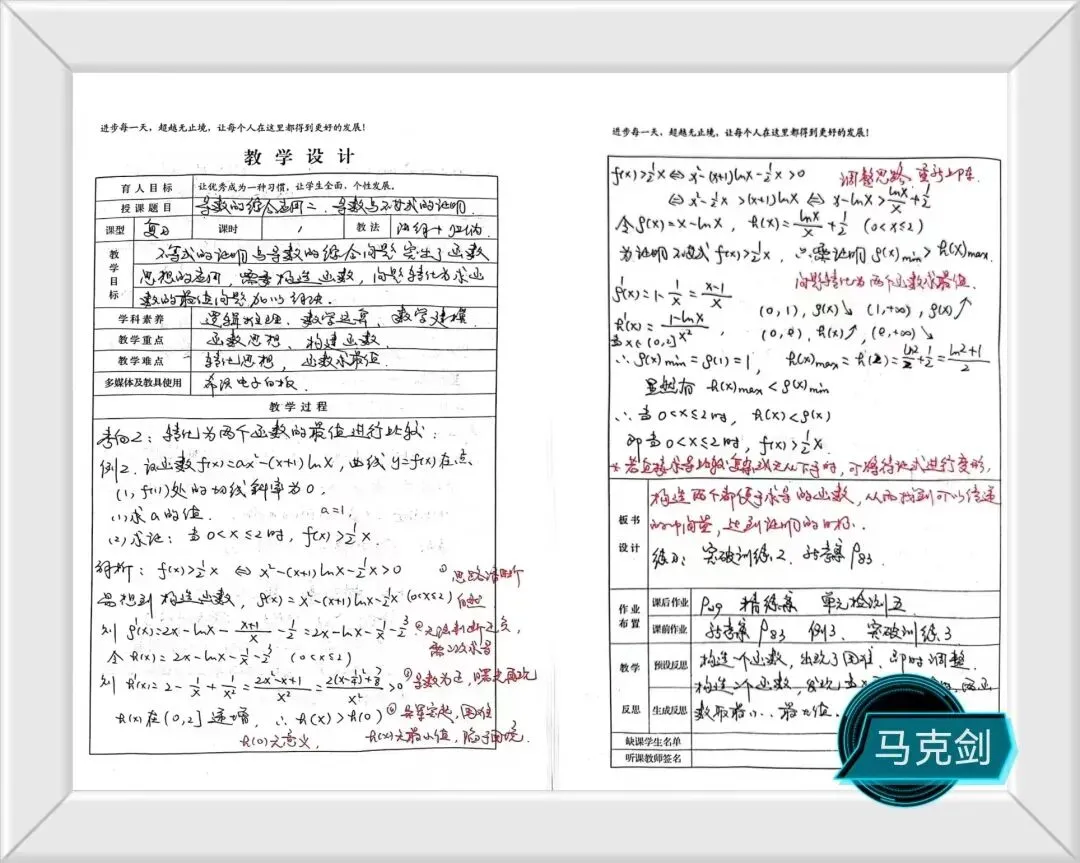 进步每一天，超越无止境，让每个人在这里都得到更好的发展！
教 学 设 计
育人目标 让优秀成为一种习惯，让学生全面、个性发展。
授课题目 导数的综合应用二、导数与不等式的证明
课型 复习 课时 1 教法 归纳
教学目标 不等式的证明与导数的综合问题突出了函数
思想的应用，需要构造函数，问题转化为求函
数的最值问题加以解决.
学科素养 逻辑推理、数学运算、数学建模
教学重点 函数思想、构建函数.
教学难点 转化思想、函数求最值.
多媒体及教具使用 希沃电子白板.
教学过程
考向2：转化为两个函数的最值进行比较：
例2.设函数f(x)=ax²-(x+1)lnx，曲线y=f(x)在点
(1, f(1))处的切线斜率为0.
(1)求a的值. a=1.
(2)求证：当0<x≤2时，f(x)>½x.
解析：f(x)>½x ⇔ x²-(x+1)lnx-½x>0 ①思路清晰
易想到构造函数，g(x)=x²-(x+1)lnx-½x (0<x≤2)
则 g'(x)=2x-lnx-(x+1)/x-½=2x-lnx-1/x-3/2 ②无法判断正负，
需二次求导
令h(x)=2x-lnx-1/x-3/2 (0<x≤2)
则h'(x)=2-1/x+1/x²=(2x²-x+1)/x²=(2(x-¼)²+7/8)/x²>0 ③导数为正，曙光再现
h(x)在(0,2]递增，∴h(x)>h(0) ④
h(0)无意义， h(x)无最小值，陷于困境.
进步每一天，超越无止境，让每个人在这里都得到更好的发展！
f(x)>½x ⇔ x²-(x+1)lnx-½x>0 调整思路
⇔ x²-½x>(x+1)lnx ⇔ x-lnx>lnx/x+½
令g(x)=x-lnx，h(x)=lnx/x+½ (0<x≤2)
为证明不等式f(x)>½x，只需证明g(x)min>h(x)max.
问题转化为两个函数求最值.
g'(x)=1-1/x=(x-1)/x (0,1), g(x)↘ (1,+∞), g(x)↗
h'(x)=(1-lnx)/x², (0,e), h(x)↗, (e,+∞)↘
当x∈(0,2]
∴g(x)min=g(1)=1, h(x)max=h(2)=ln2/2+½=(ln2+1)/2
显然有 h(x)max<g(x)min
∴当0<x≤2时，h(x)<g(x)
即当0<x≤2时，f(x)>½x.
*若直接求导比较复杂或无从下手时，可将待证式进行变形，
板书设计 构造两个都便于求导的函数，从而找到可以传递
的中间量，达到证明的目标.
练习：突破训练2. P83
作业布置 课后作业 P119 单元检测五
课前作业 P83 例3、突破训练3
教学反思 预设反思 构造一个函数，出现了困难，即时调整
生成反思 构造二个函数，
数取最小、最大值.
缺课学生名单
听课教师签名
马克剑